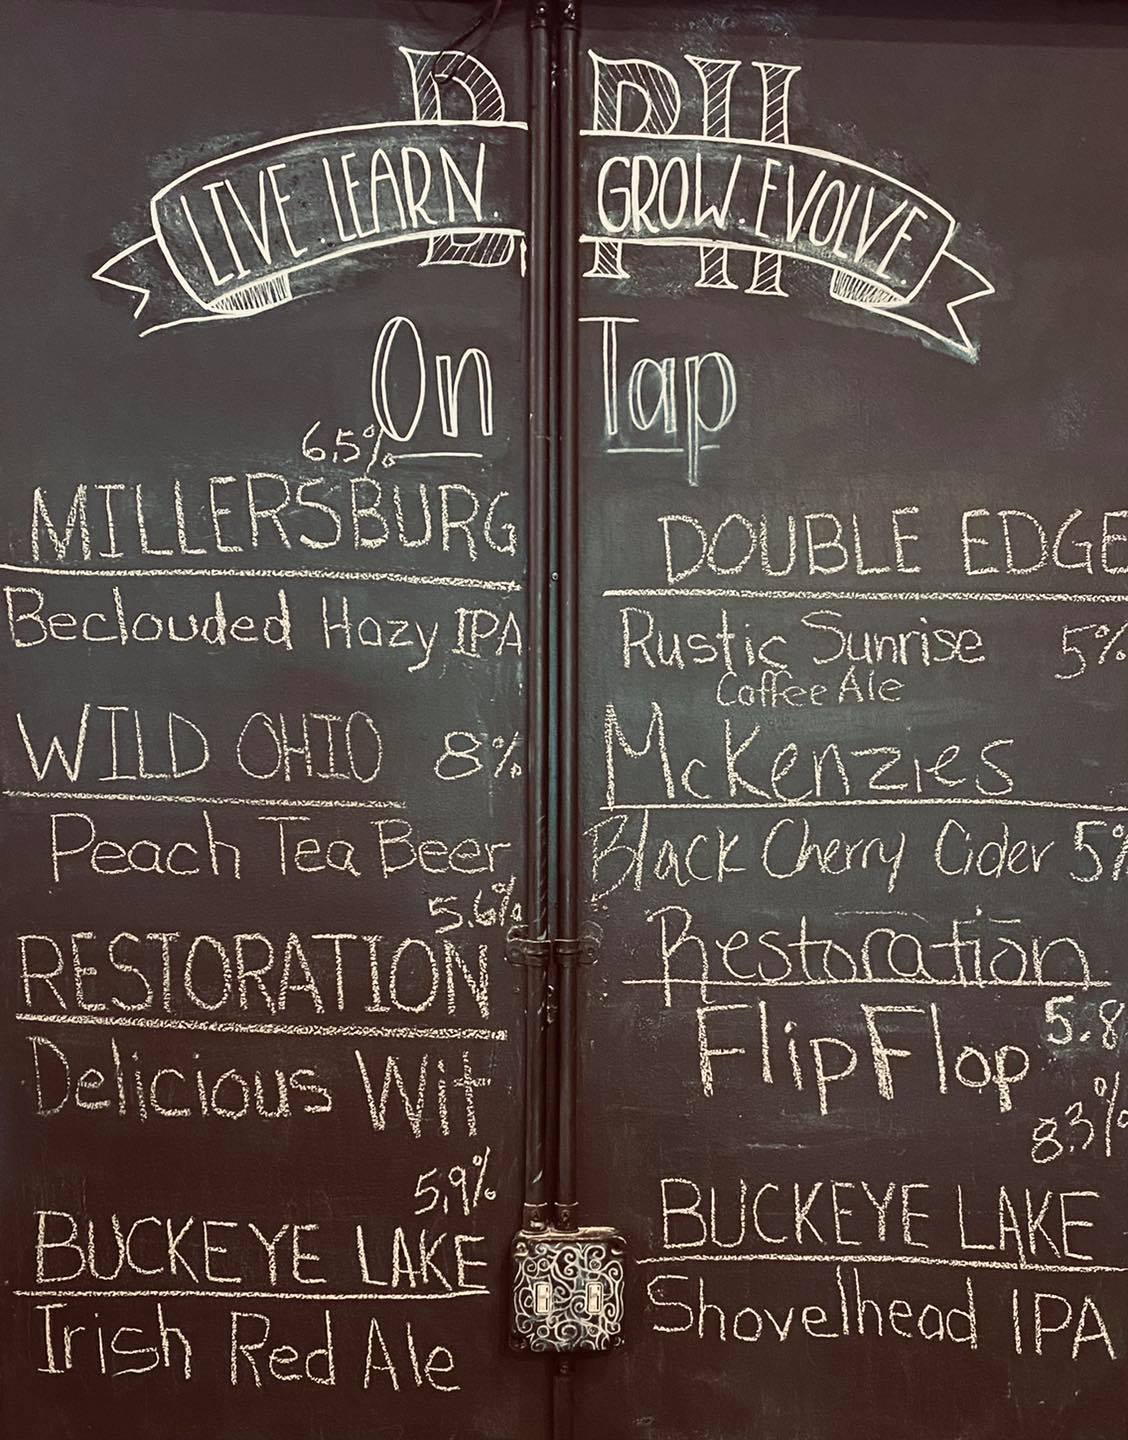 LIVE. LEARN. GROW. EVOLVE.
On Tap
6.5%
MILLERSBURG
Beclouded Hazy IPA
WILD OHIO 8%
Peach Tea Beer
5.6%
RESTORATION
Delicious Wit
5.9%
BUCKEYE LAKE
Irish Red Ale
DOUBLE EDGE
Rustic Sunrise 5%
Coffee Ale
McKenzies
Black Cherry Cider 5%
Restoration
FlipFlop 5.8
8.3%
BUCKEYE LAKE
Shovelhead IPA